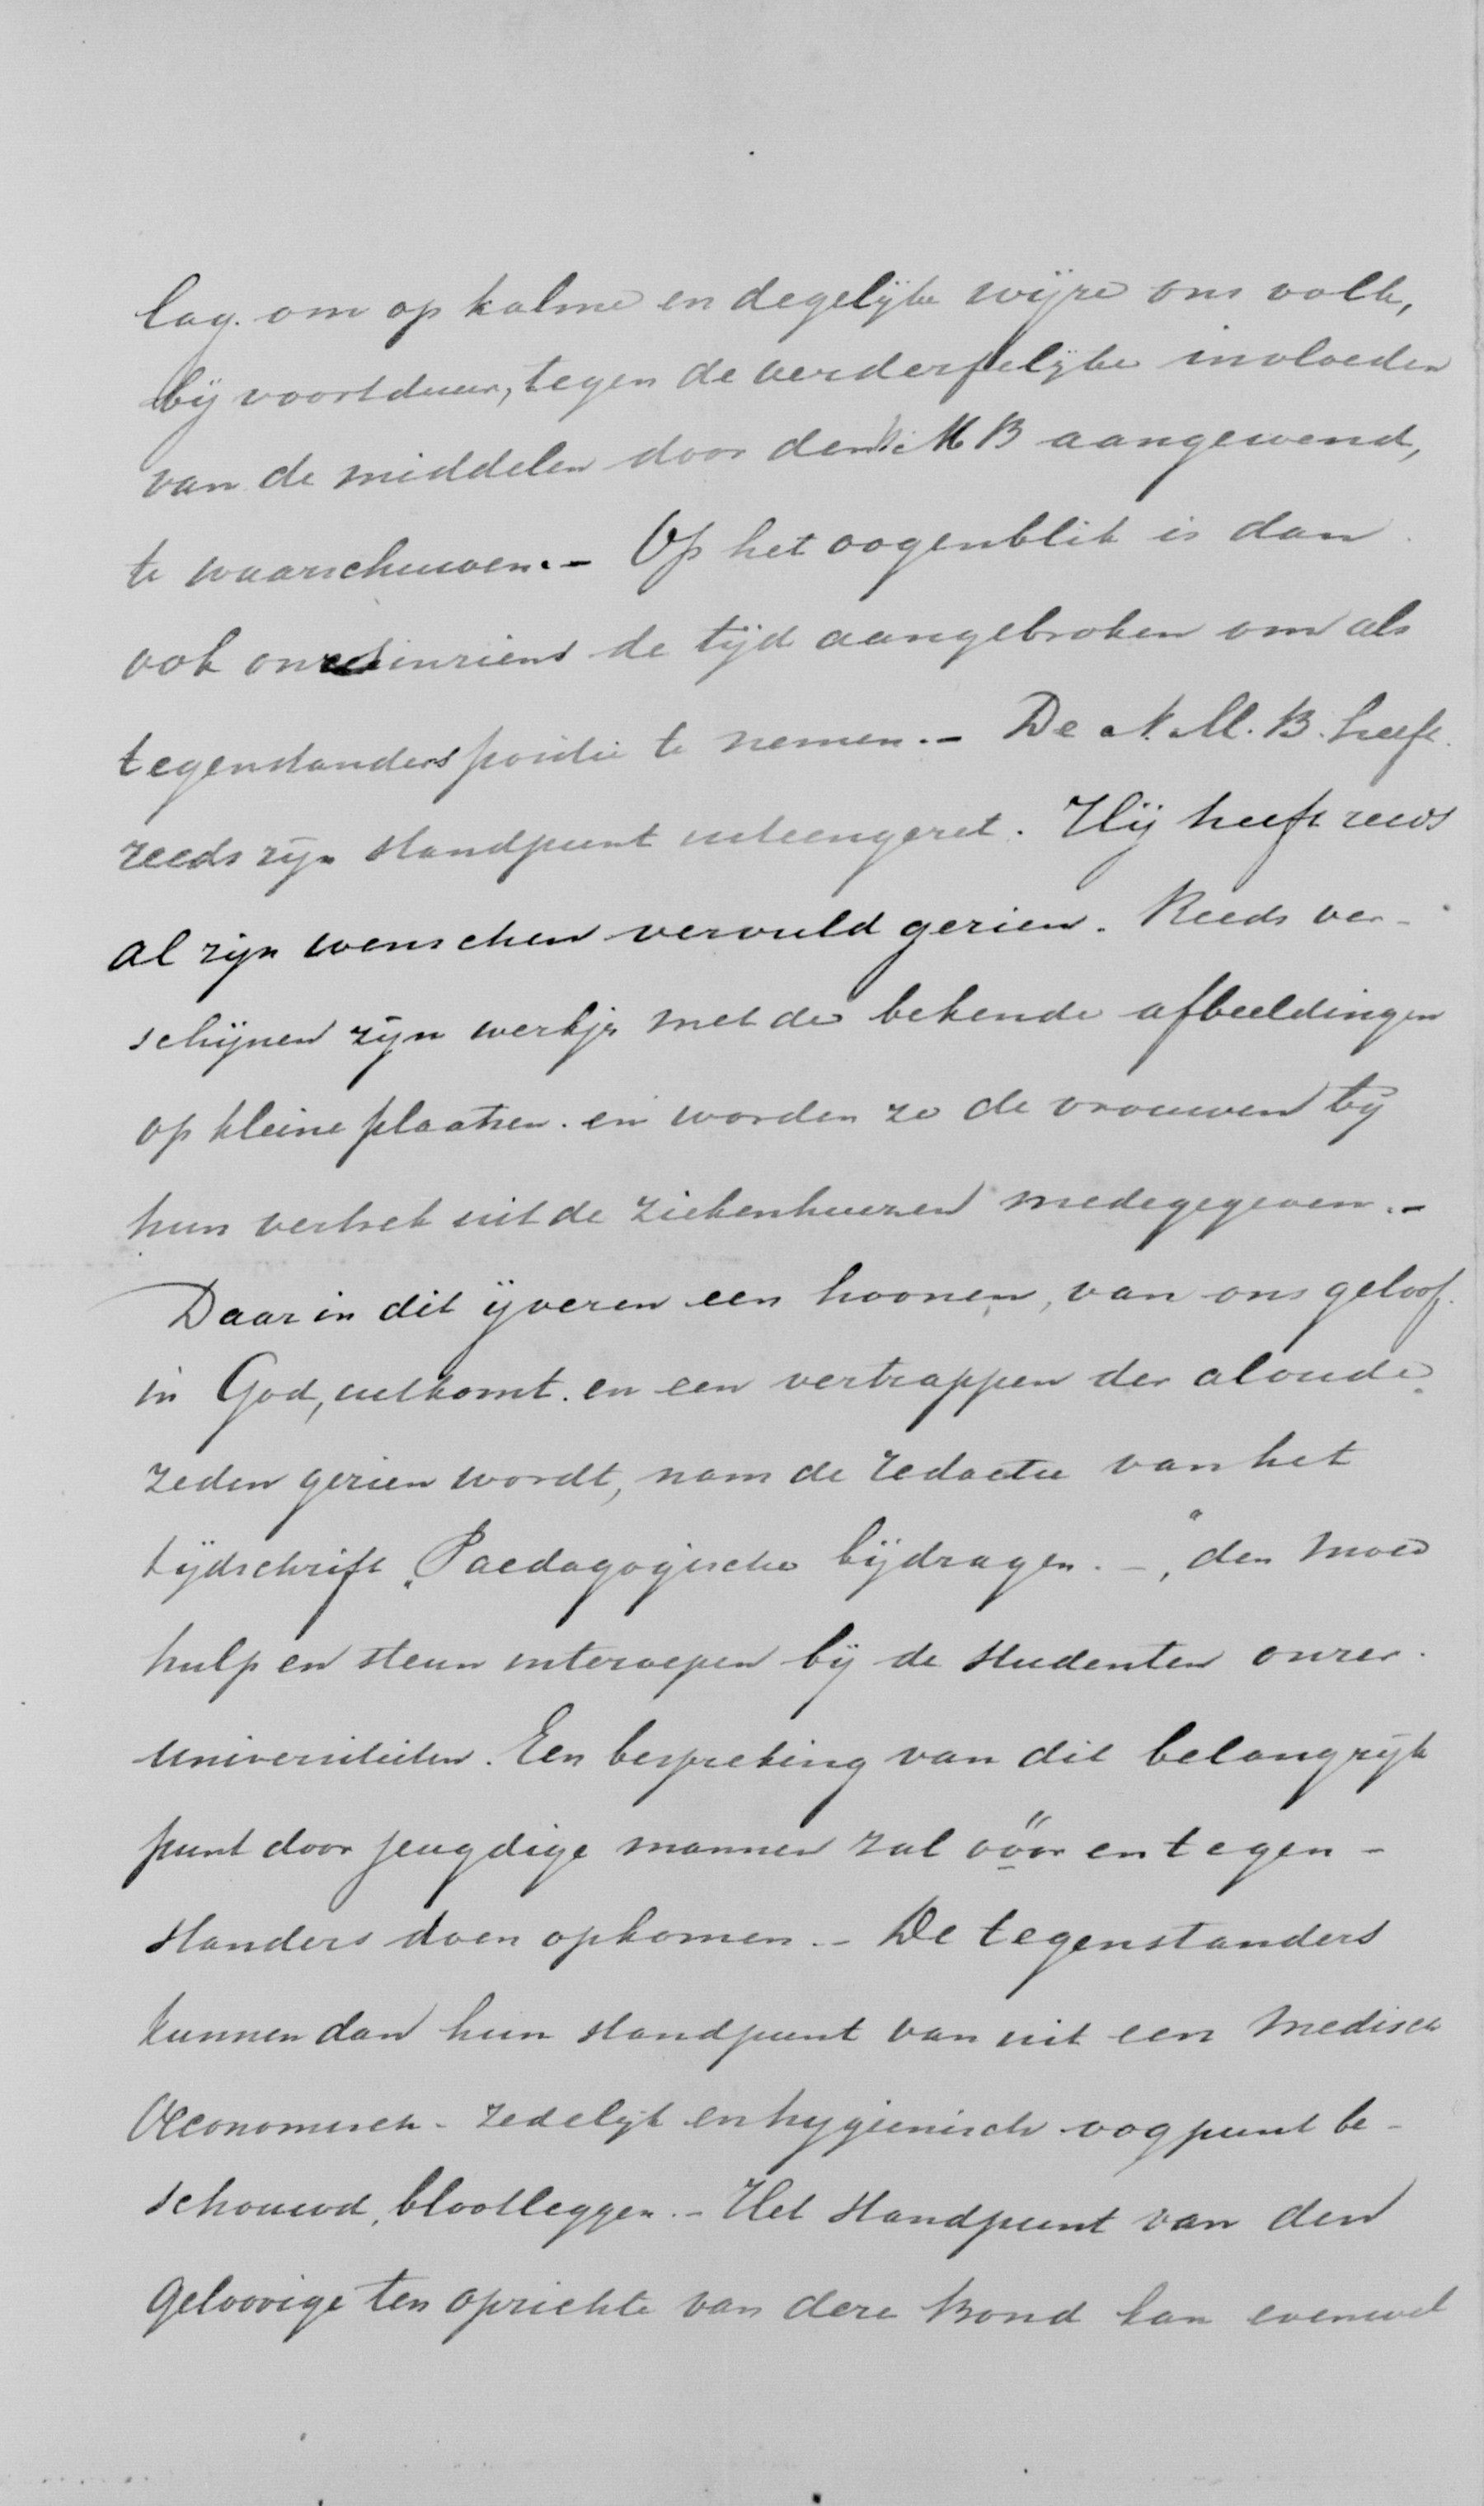 lag. om op kalme en degelijke wijze ons volk,
bij voortduur, tegen de verderfelijke invloeden
van de middelen door den N. M B aangewend,
te waarschuwen. - Op het oogenblik is dan
ook onzes inziens de tijd aangebroken om als
tegenstanders positie te nemen. - De N. M. B. heeft
reeds zijn standpunt uiteengezet. Hij heeft reeds
al zijn wenschen vervuld gezien. Reeds ver-
schijnen zijn werkjes met de bekende afbeeldingen
op kleine plaatsen. en worden ze de vrouwen bij
hun vertrek uit de ziekenhuizen medegegeven. -
Daar in dit ijveren een hoonen, van ons geloof
in God, uitkomt. en een vertrappen der aloude
zeden gezien wordt, nam de redactie van het
tijdschrift „Paedagogische bijdragen. -," den moed
hulp en steun interoepen bij de studenten onzer
universiteiten. Een bespreking van dit belangrijk
punt door jeugdige mannen zal vóór en tegen-
standers doen opkomen. - De tegenstanders
kunnen dan hun standpunt van uit een medisch
Oeconomisch - zedelijk en hygienisch oogpunt be-
schouwd, blootleggen. - Het standpunt van den
Geloovige ten opzichte van deze Bond kan evenwel